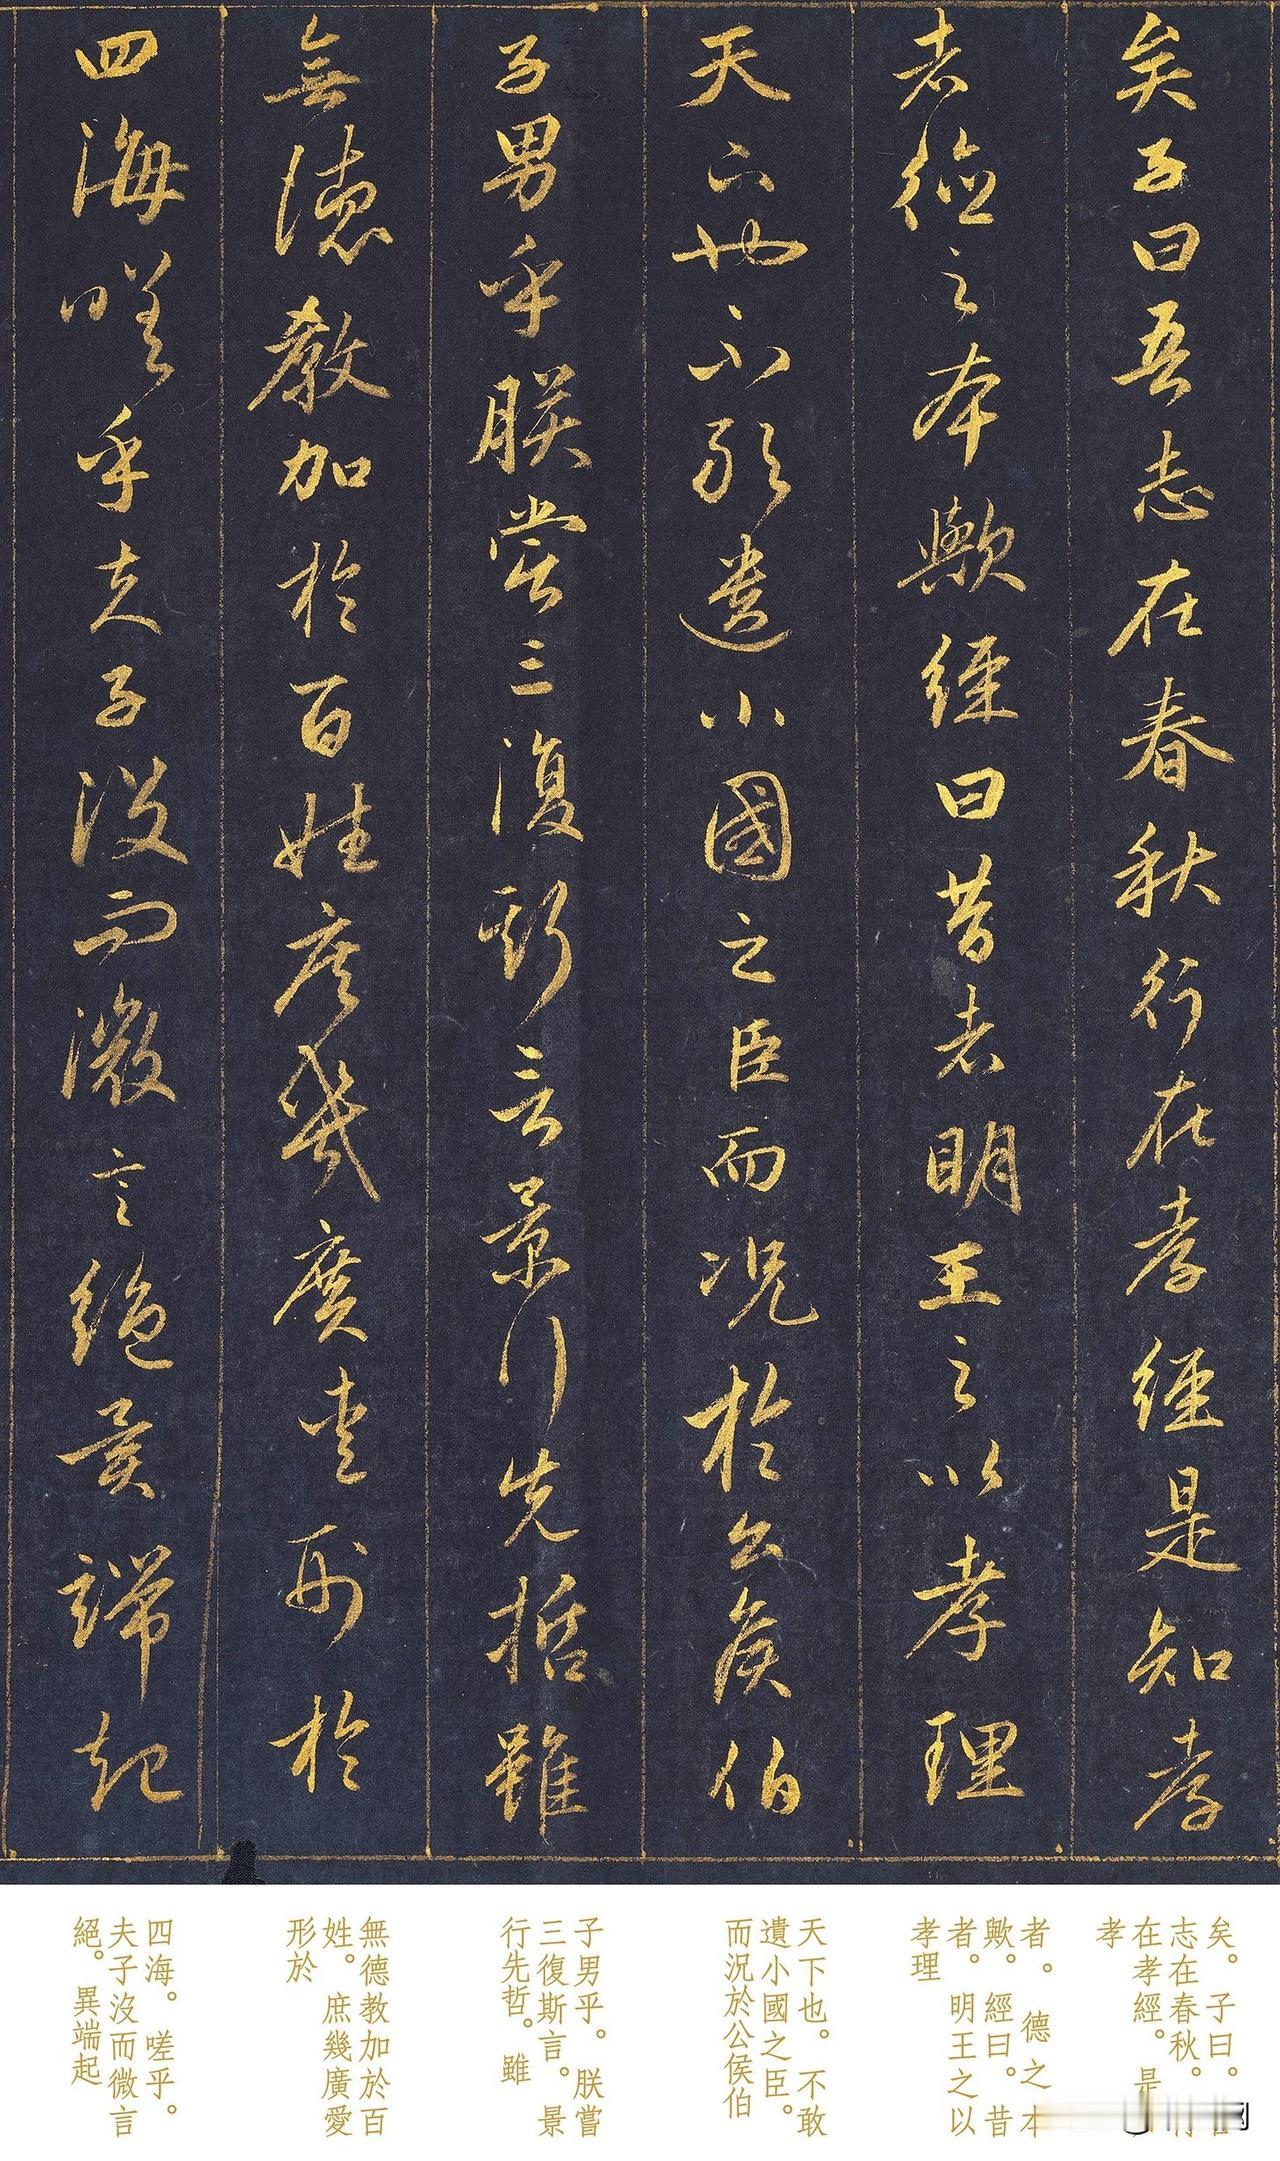 矣子曰吾志在春秋行在孝經是知孝
者德之本歟經曰昔者明王之以孝理
天下也不敢遺小國之臣而況於公侯伯
子男乎朕嘗三復斯言景行先哲雖
無德教加於百姓庶幾廣愛形於
四海嗟乎夫子沒而微言絕異端起
矣。子曰。
志在春秋。
在孝經。是
孝
者。德之本
歟。經曰。昔
者。明王之以
孝理
天下也。不敢
遺小國之臣。
而況於公侯伯
子男乎。朕嘗
三復斯言。景
行先哲。雖
無德教加於百
姓。庶幾廣愛
形於
四海。嗟乎。
夫子沒而微言
絕。異端起
网